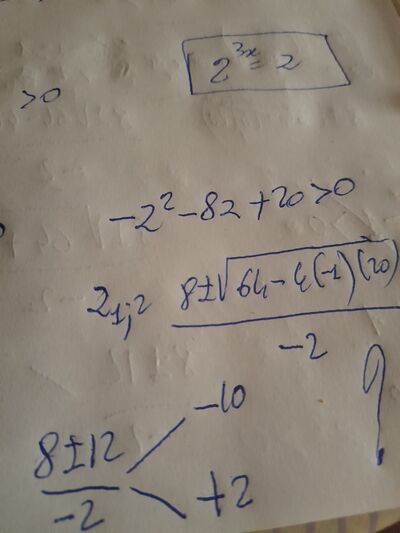 2^{3x} = 2
>0
-2² - 82 + 20 > 0
2₁;₂ \frac{8±\sqrt{64-4(-1)(20)}}{-2}
\frac{8±12}{-2}
-10
+2